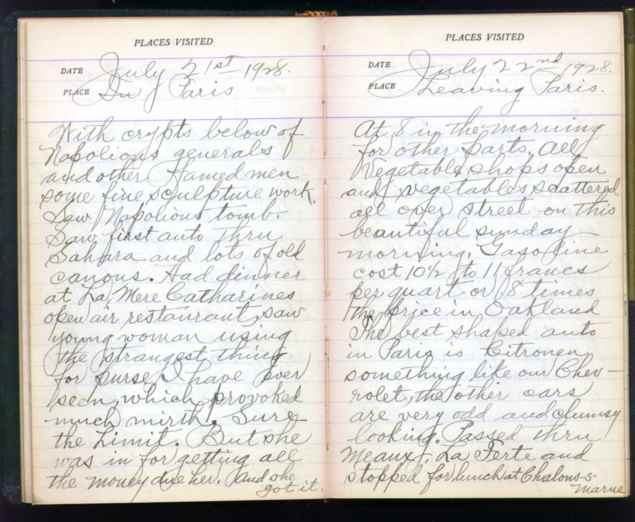 PLACES VISITED
DATE July 21st 1928.
PLACE In Paris
With crypts below of
Napolions generals
and other Famed men
some fine sculpture work.
Saw Napolions tomb.
Saw first auto thru
Sahara and lots of old
canons. Had dinner
at La Mere Catharines
open air restaurant, saw
young woman using
the strangest thing
for purse I have ever
seen, which provoked
much mirth. Sure
the Limit. But she
was in for getting all
the money due her. and she
got it.
PLACES VISITED
DATE July 22nd 1928.
PLACE Leaving Paris.
At 8 in the morning
for other parts. All
Vegetable shops open
and vegetables scattered
all over street on this
beautiful sunday
morning. Gasoline
cost 10½ to 11 francs
per quart or 8 times
the price in Oakland
The best shaped auto
in Paris is Citronen
something like our Chev-
rolet, the other cars
are very odd and clumsy
looking. Passed thru
Meaux & La Ferte and
stopped for lunch at Chalons-s-
Marne